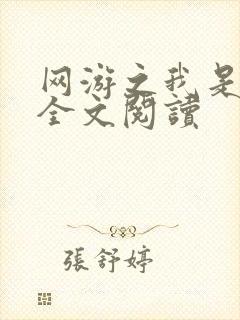 网游之我是
全文閱讀
張舒婷